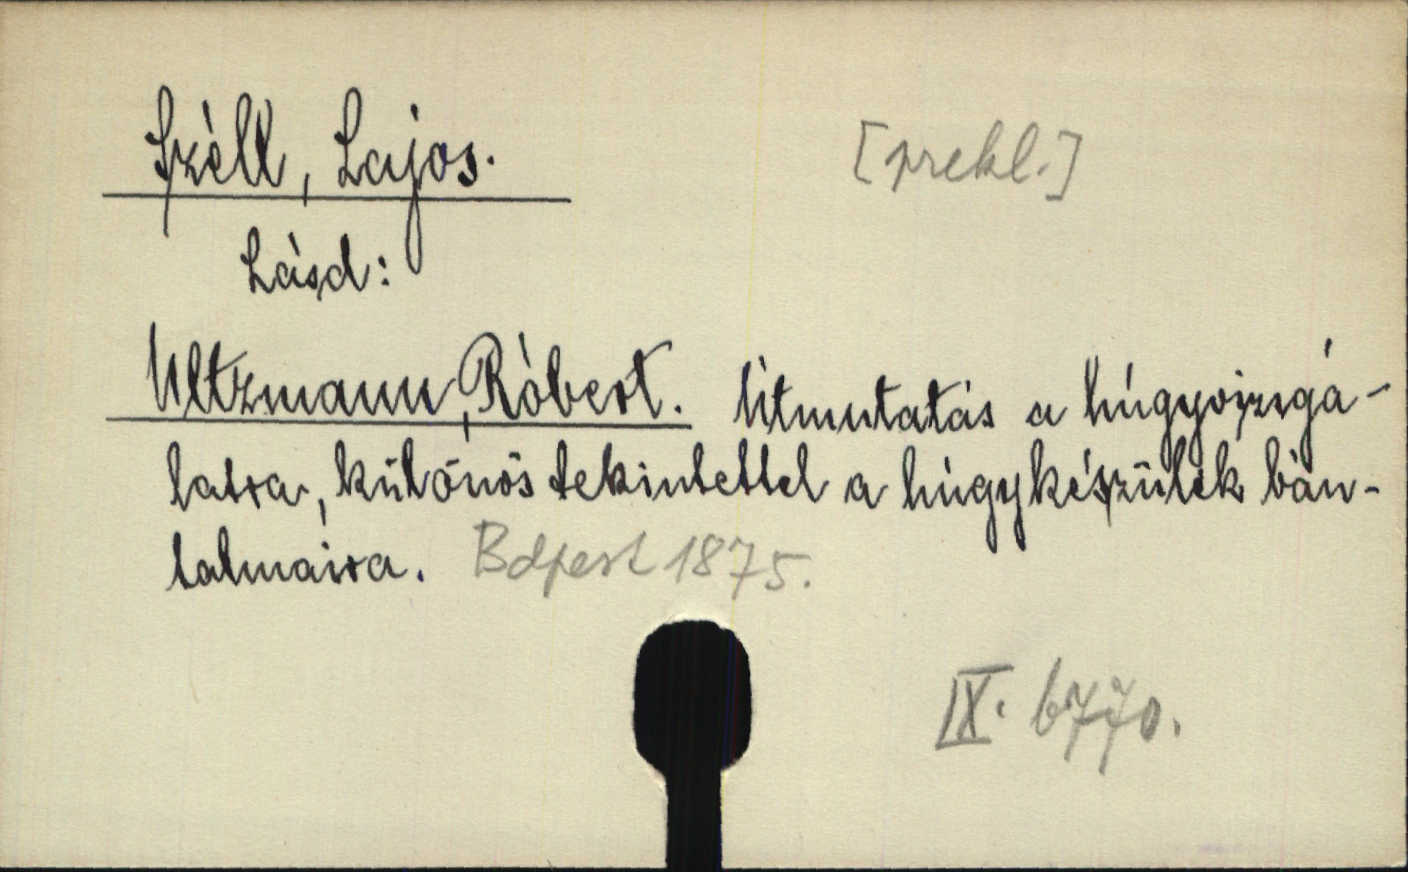 Széll, Lajos. [prekl.]
Lásd:
Ultzmann, Róbert. Útmutatás a húgyvizsgá-
latra, különös tekintettel a húgykészülék bán-
talmaira. Bdpest 1875.
IX. 6770.